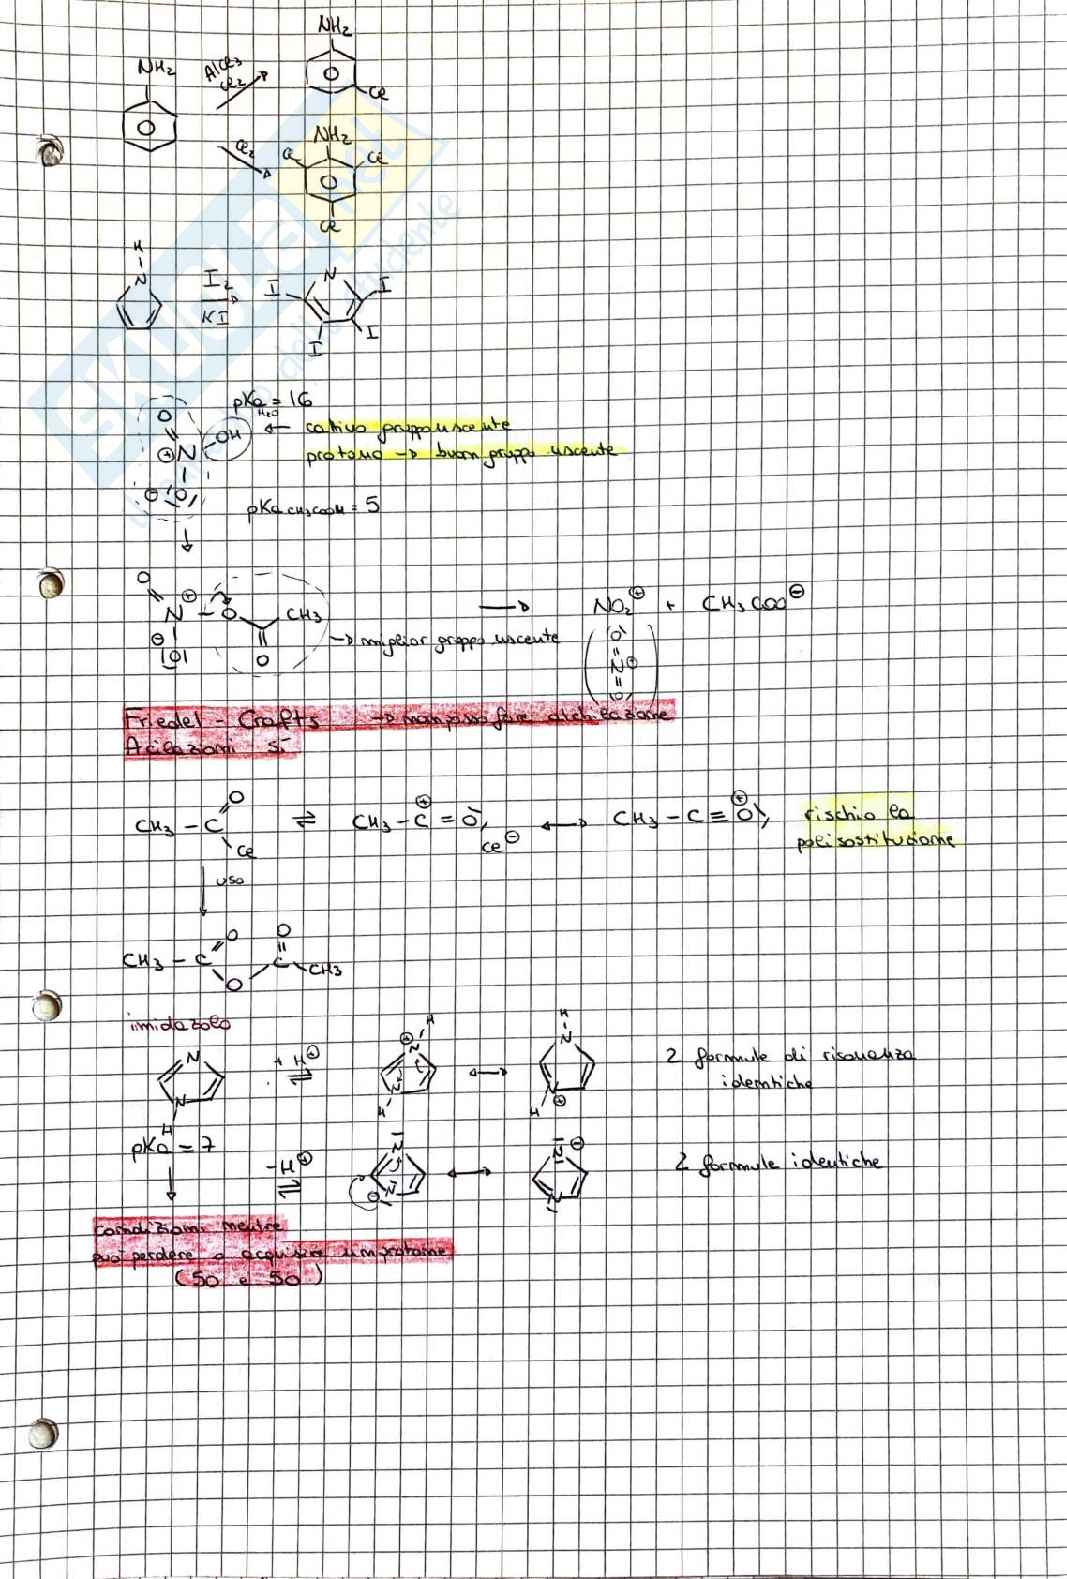 NH₂
NH₂ AlCl₃ Cl₂ Cl
Cl₂ NH₂ Cl Cl Cl
H
N I₂ KI N I I I I
pKa H₂O = 16
O N⊕ OH ← cattivo gruppo uscente
protono → buon gruppo uscente
⊖O
pKa CH₃COOH = 5
O N⊕ – O CH₃ → NO₂⊕ + CH₃COO⊖
→ miglior gruppo uscente
⊖ O O
O = N⊕ = O
Friedel - Crafts → non posso fare alchilazione
Acilazioni sì
CH₃ – C O Cl ⇌ CH₃ – C⊕ = O, Cl⊖ ↔ CH₃ – C ≡ O⊕, rischio la
polisostituzione
uso
CH₃ – C O O C O CH₃
imidazolo
N N H + H⊕ ⇌ ⊕N H N H ↔ H N N⊕ H 2 formule di risonanza
identiche
pKa = 7
- H⊕ ⇌ N ⊖N ↔ N⊖ N 2 formule identiche
condizioni neutre
può perdere o acquisire un protone
(50 e 50)